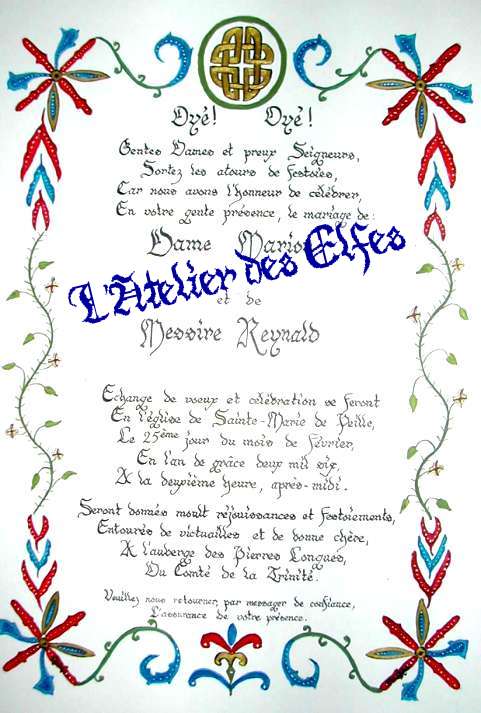 Oyé! Oyé!
Gentes Dames et preux Seigneurs,
Sortez les atours de festoies,
Car nous avons l'honneur de célébrer,
En votre gente présence, le mariage de:
Dame Marion
L'Atelier des Elfes
et de
Messire Reynald
Echange de voeux et célébration se feront
En l'église de Sainte-Marie de Peille,
Le 25ème jour du mois de février,
En l'an de grâce deux mil six,
A la deuxième heure, après-midi.
Seront donnés moult réjouissances et festoiements,
Entourés de victuailles et de bonne chère,
A l'auberge des Pierres Longues,
Du Comté de la Trinité.
Veuillez nous retourner, par messager de confiance,
L'assurance de votre présence.